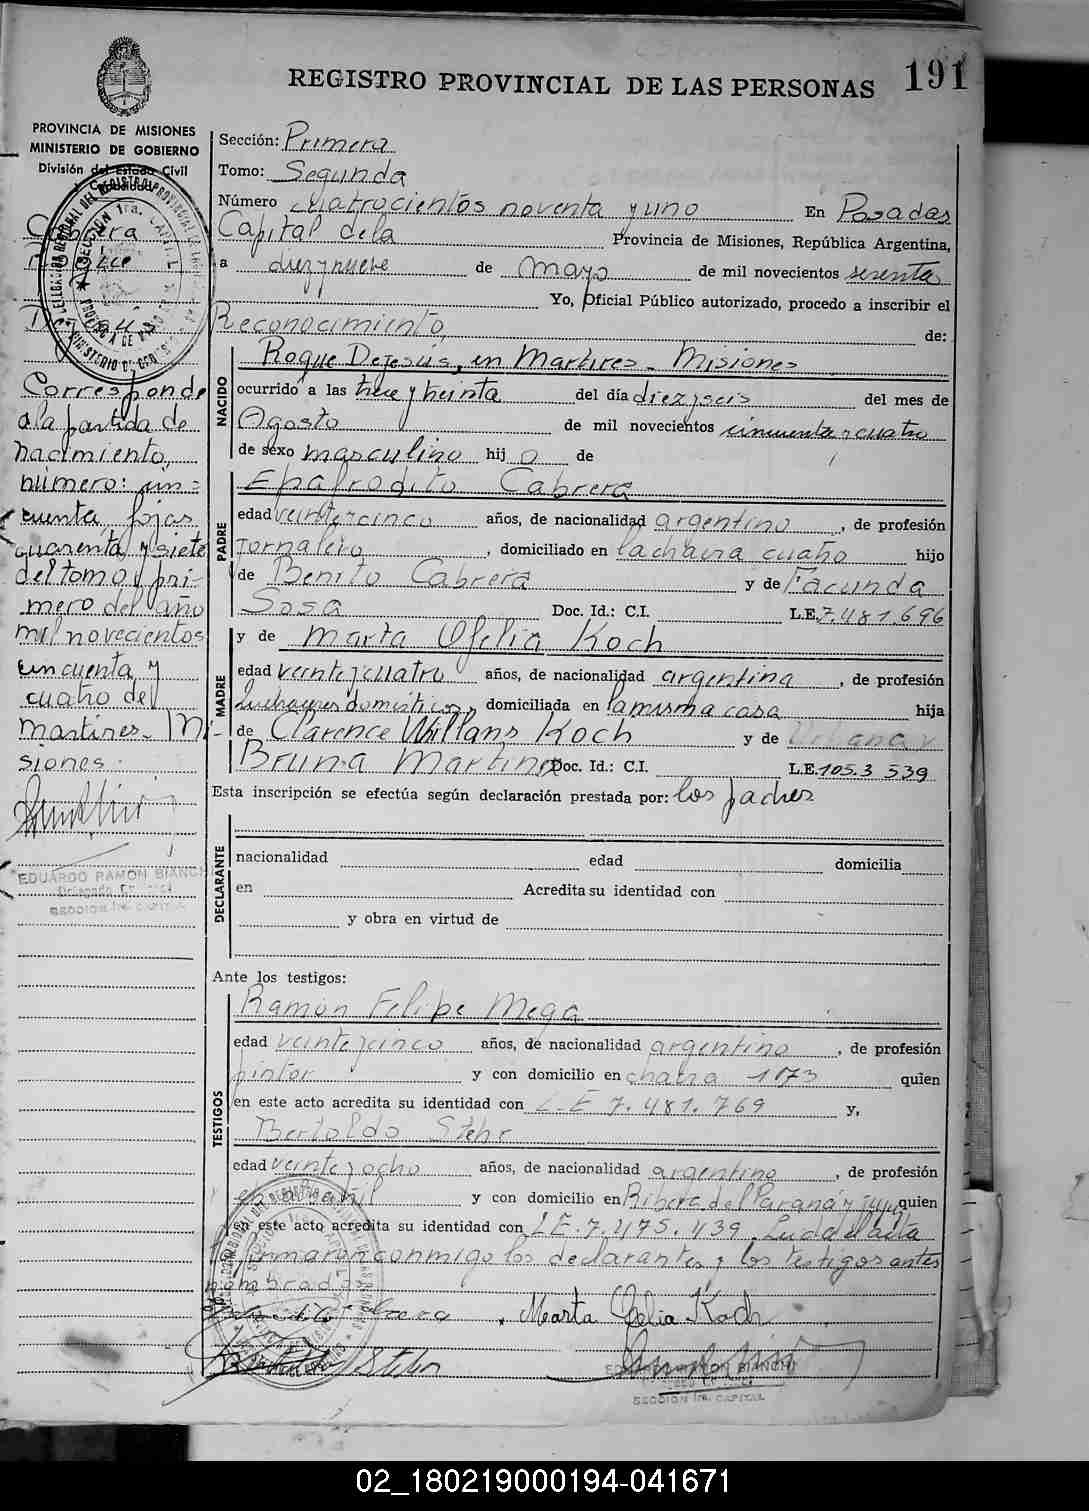 REGISTRO PROVINCIAL DE LAS PERSONAS 191
PROVINCIA DE MISIONES
MINISTERIO DE GOBIERNO
División del Estado Civil
Sección: Primera
Tomo: Segunda
Número cuatrocientos noventa y uno En Posadas
Capital de la Provincia de Misiones, República Argentina,
a diez y nueve de mayo de mil novecientos sesenta
Yo, Oficial Público autorizado, procedo a inscribir el
Reconocimiento, de:
NACIDO
Roque Dejesus, en Martires - Misiones
ocurrido a las trece y treinta del día diez y seis del mes de
Agosto de mil novecientos cincuenta y cuatro
de sexo masculino hij o de
PADRE
Epafrodito Cabrera
edad veinte y cinco años, de nacionalidad argentino, de profesión
Jornalero, domiciliado en la chacra cuatro hijo
de Benito Cabrera y de Facunda
Sosa Doc. Id.: C.I. L.E. 7.481.696
MADRE
y de Marta Ofelia Koch
edad veinte y cuatro años, de nacionalidad argentina, de profesión
quehaceres domesticos, domiciliada en la misma casa hija
de Clarence Willans Koch y de
Bruna Martinez Doc. Id.: C.I. L.E. 105.3 539
Esta inscripción se efectúa según declaración prestada por: los padres
DECLARANTE
nacionalidad edad domicilia
en Acredita su identidad con
y obra en virtud de
Ante los testigos:
TESTIGOS
Ramón Felipe Mega
edad veinte y cinco años, de nacionalidad argentino, de profesión
pintor y con domicilio en chacra 173 quien
en este acto acredita su identidad con L.E 7.481.769 y,
Bertoldo Stehr
edad veinte y ocho años, de nacionalidad argentino, de profesión
y con domicilio en Ribera del Paraná y quien
en este acto acredita su identidad con L E. 7.475.439. Leida el acta
firmaron conmigo los declarantes y los testigos antes
nombrados
Marta Ofelia Koch
Stehr
EDUARDO RAMON BIANCHI
SECCION 1ra. CAPITAL
Cabrera
Corresponde
a la partida de
nacimiento,
número: cin=
cuenta fojas
cuarenta y siete
del tomo pri-
mero del año
mil novecientos
cincuenta y
cuatro de
Martires - Mi-
siones.
EDUARDO RAMON BIANCHI
SECCION 1ra. CAPITAL
02_180219000194-041671